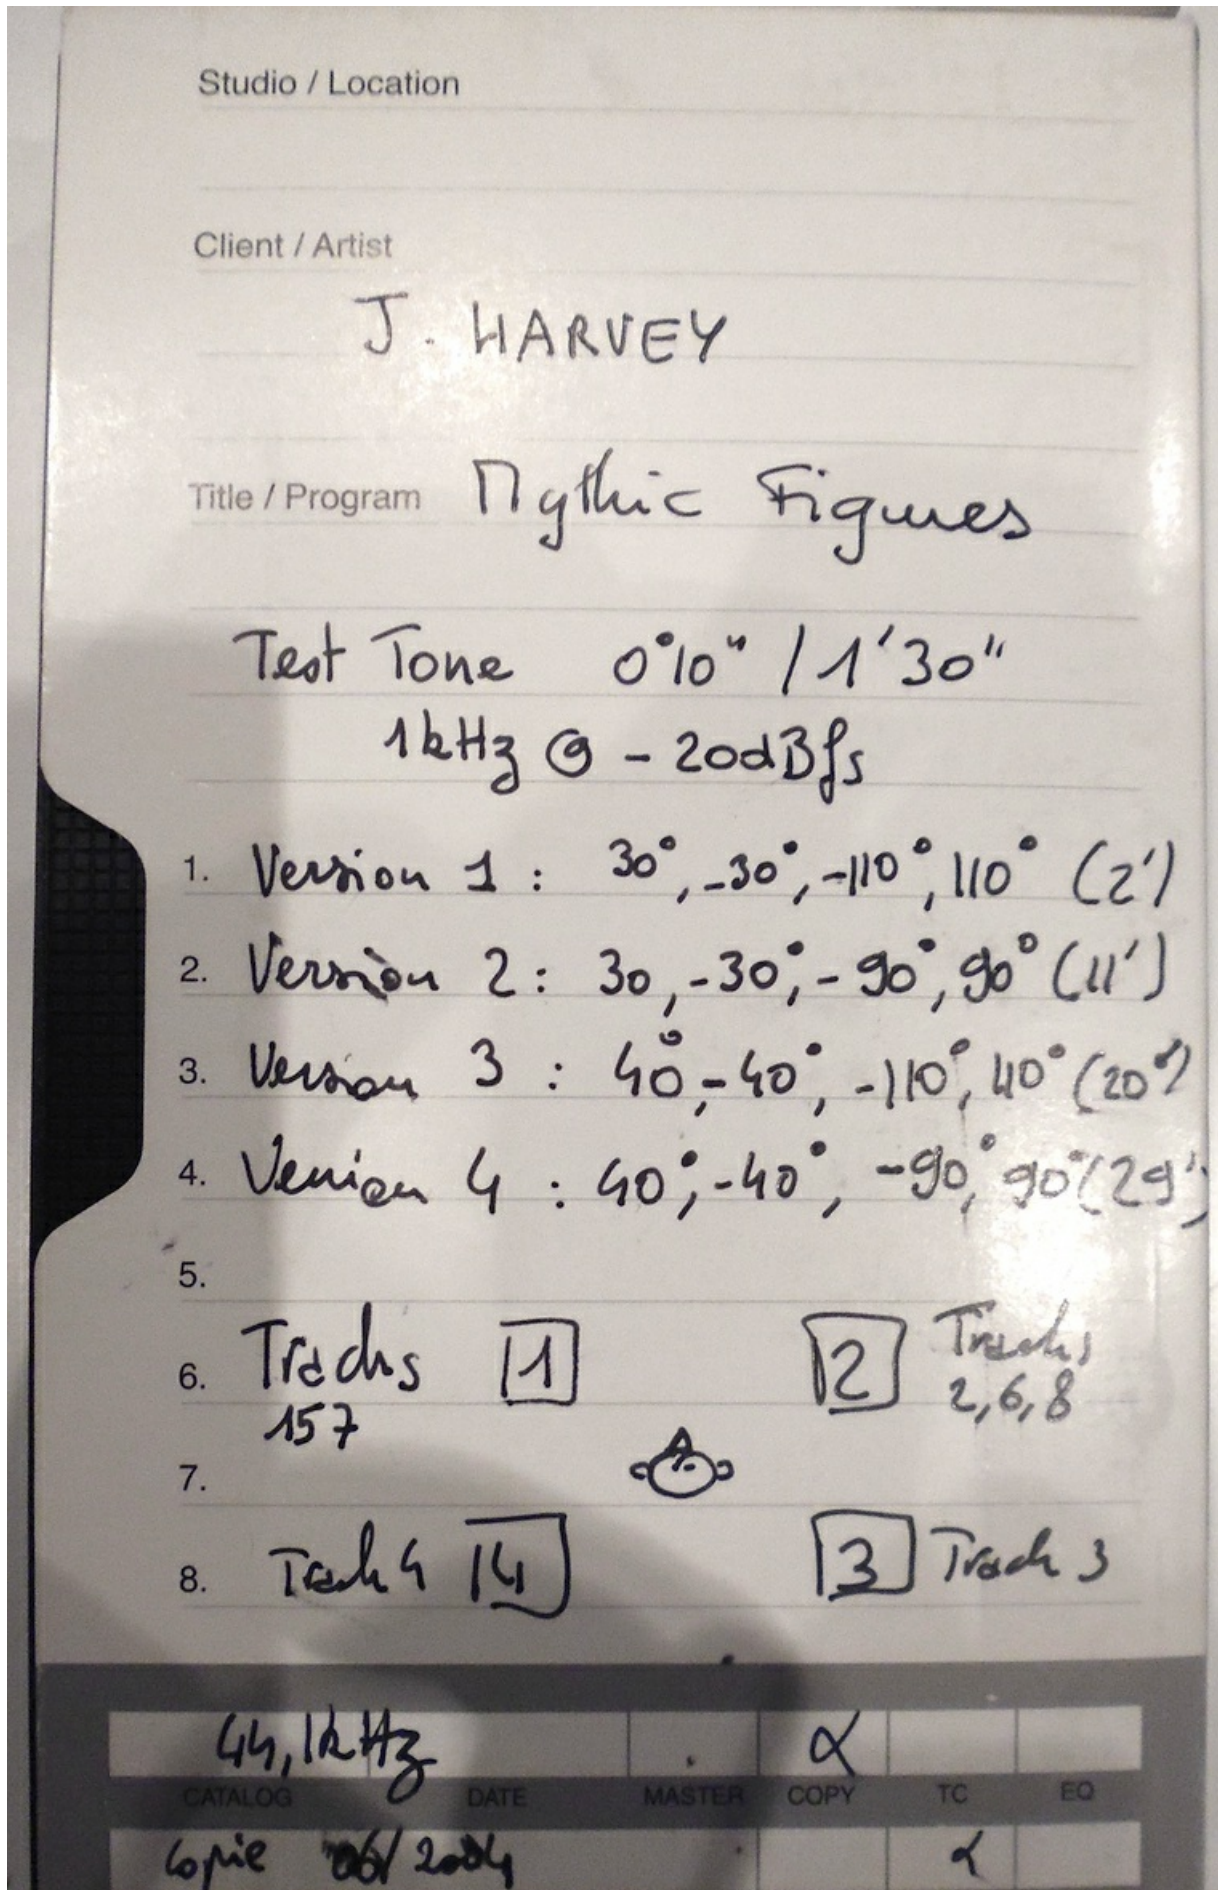 Studio / Location
Client / Artist
J. HARVEY
Title / Program Mythic Figures
Test Tone 0°10" / 1'30"
1kHz @ - 20dBfs
1. Version 1 : 30°, -30°, -110°, 110° (2')
2. Version 2 : 30, -30°, - 90°, 90° (11')
3. Version 3 : 40°, -40°, -110°, 40° (20')
4. Version 4 : 40°, -40°, -90°, 90° (29')
5.
6. Tracks 1 2 Tracks
157 2,6,8
7.
8. Track 4 4 3 Track 3
44,1kHz α
CATALOG DATE MASTER COPY TC EQ
Copie 06/2004 α